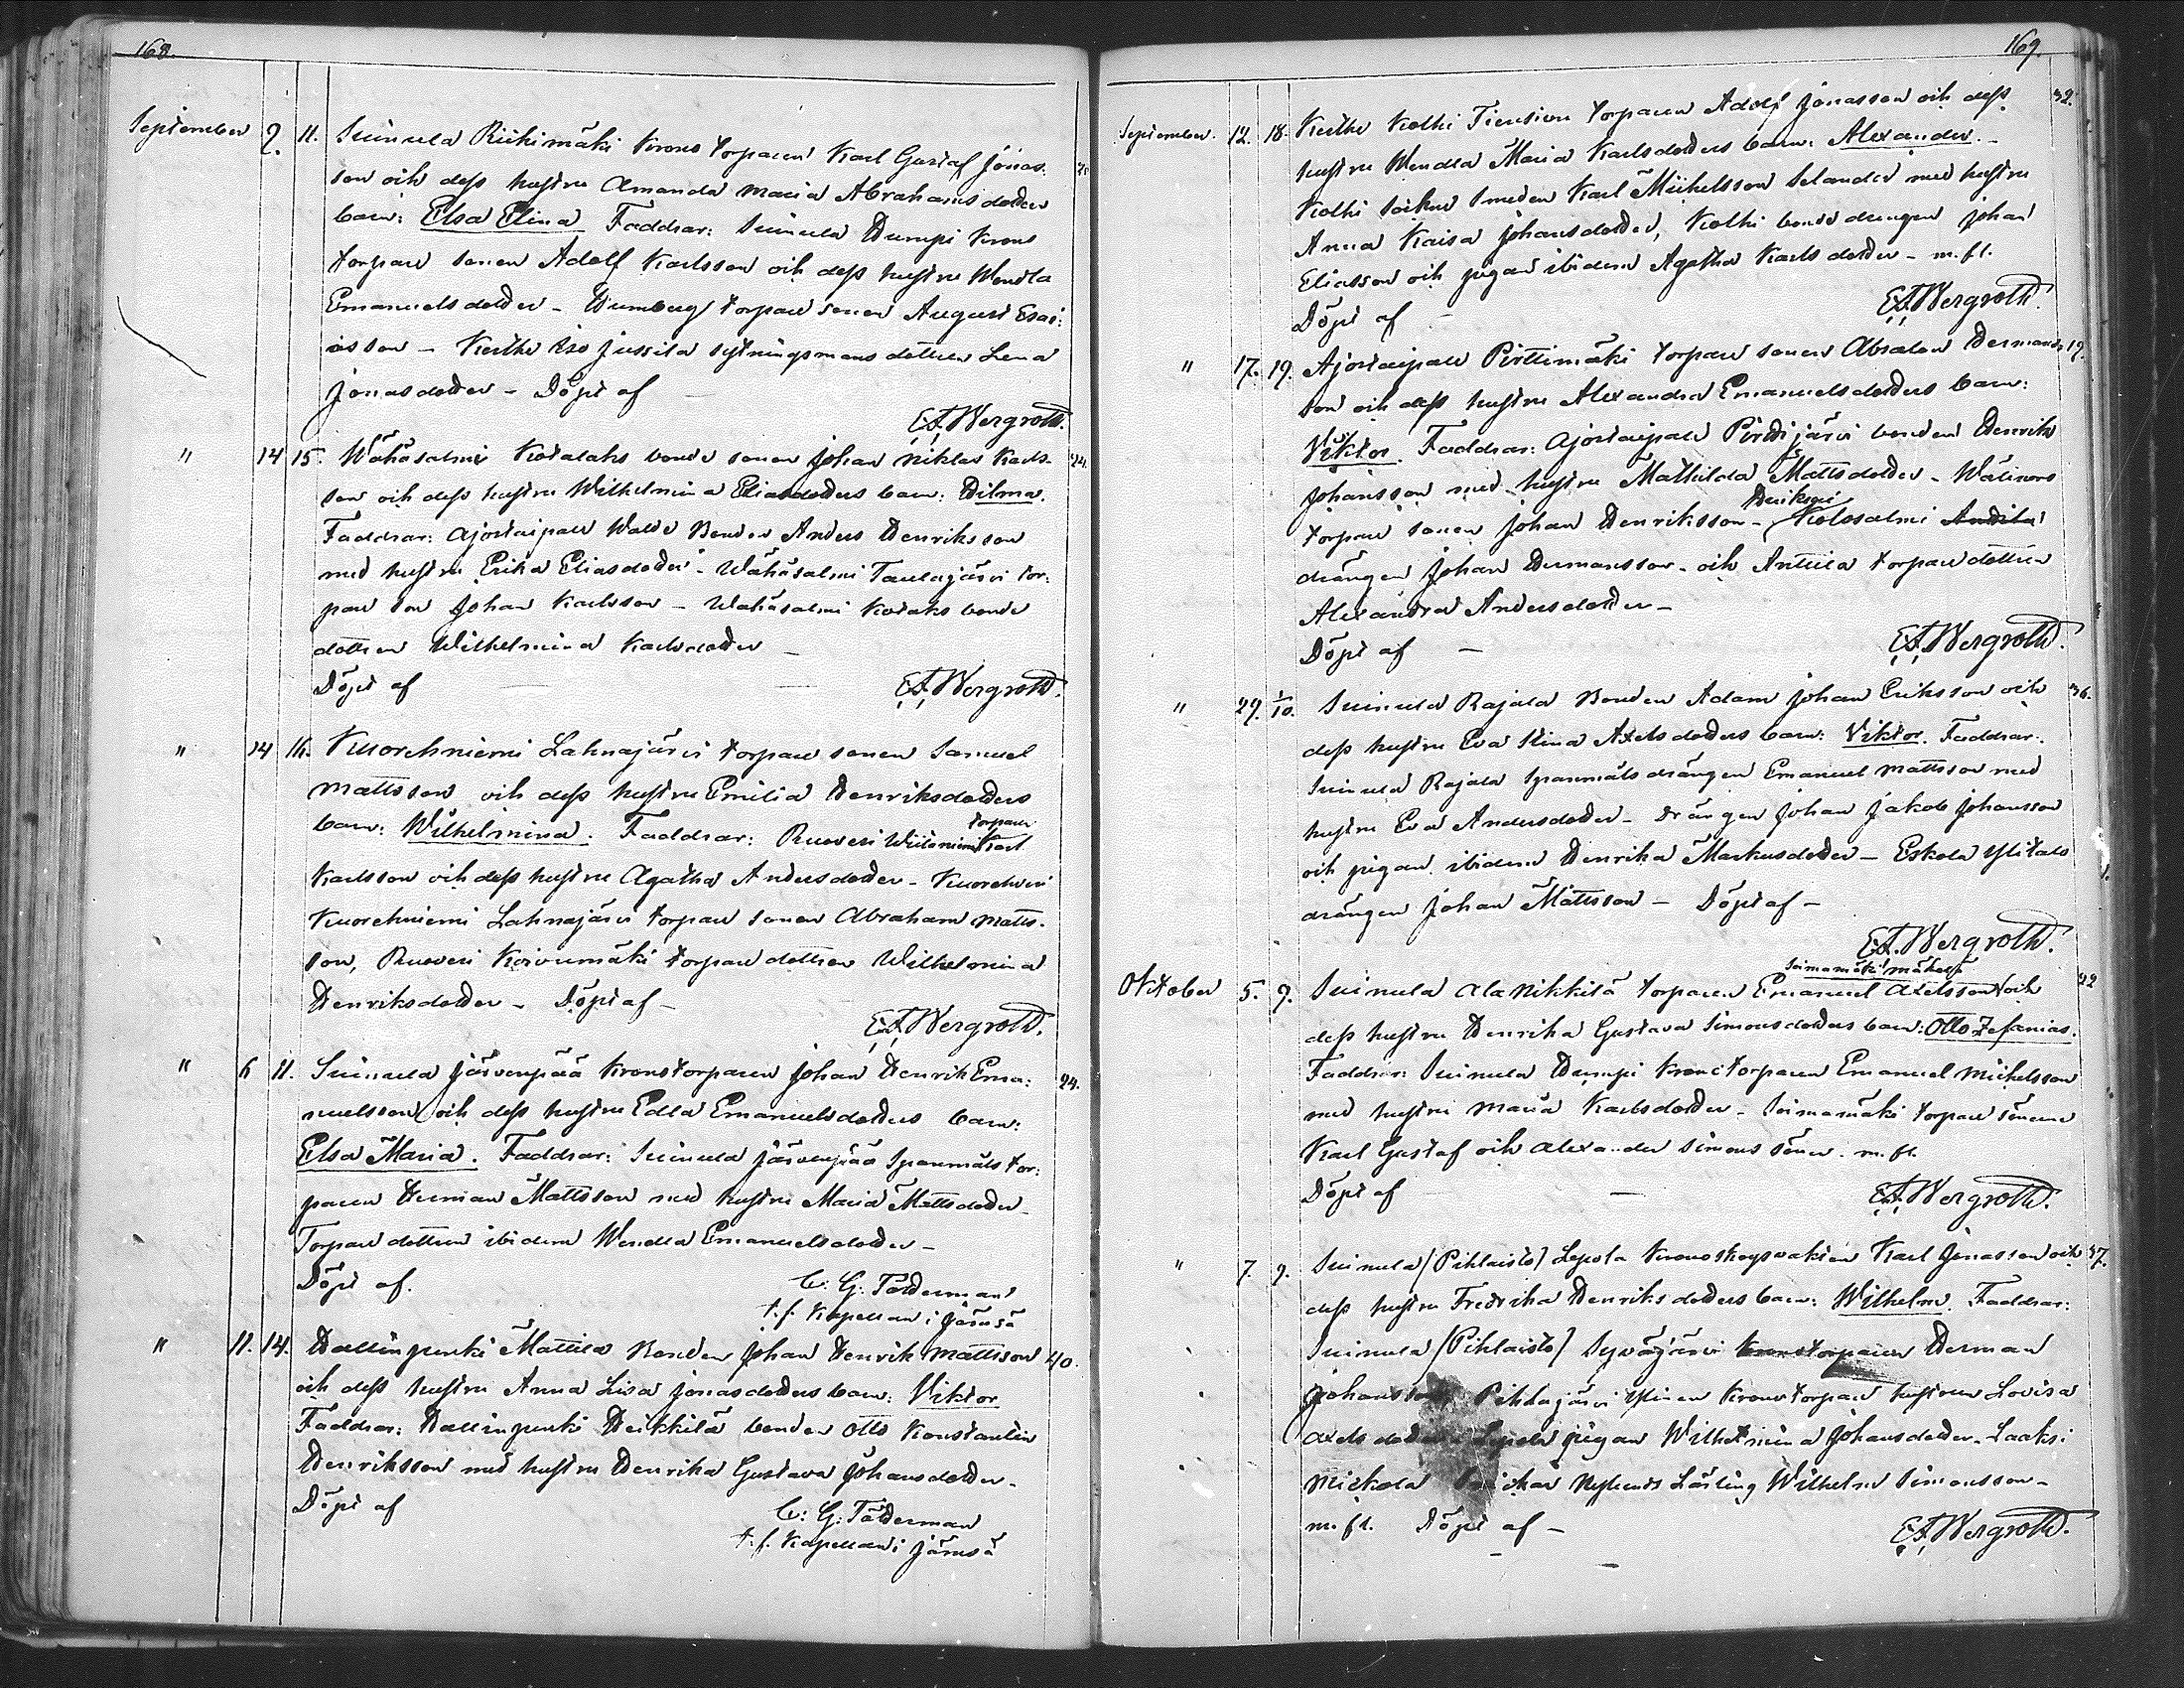 168.
September 9. 11. Suinula Riihimäki Krono torparen Karl Gustaf Jonas-
son och dess hustru Amanda Maria Abrahamsdotters
barn: Elsa Elina Faddrar: Suinula Humpi Krono
torpare sonen Adolf Karlsson och dess hustru Wendla
Emanuelsdotter - Humberg torpare sonen August Esai-
asson - Keitho Iso Jussila sytningsmans dottren Lena
Jonasdotter - Döpt af
E.A. Bergroth.
" 14 15. Wähäsalmi Kotalahs bonde sonen Johan Niklas Karls- 24.
son och dess hustru Wilhelmina Eliasdotters barn: Hilma.
Faddrar: Ajostaipale Walde Bonden Anders Henriksson
med hustru Erika Eliasdotter - Wähäsalmi Taulajärvi tor-
pare son Johan Karlsson - Wähäsalmi Kotaks bonde
dottren Wilhelmina Karlsdotter
Döpt af E.A. Bergroth.
" 14 16. Kuorehniemi Lahnajärvi torpare sonen Samuel
Mattsson och dess hustru Emilia Henriksdotters
torparen
barn: Wilhelmina. Faddrar: Ruoveri Wiiloniemi Karl
Karlsson och dess hustru Agatha Andersdotter -
Kuorehniemi Lahnajärvi torpare sonen Abraham Matts-
son, Ruoveri Koivumäki torpare dottren Wilhelmina
Henriksdotter - Döpt af -
E.A. Bergroth.
" 6 11. Suinula Järvenpää Kronotorparen Johan Henrik Ema- 24.
nuelsson och dess hustru Edla Emanuelsdotters barn:
Elsa Maria. Faddrar: Suinula Järvenpää Spanmåls tor-
paren Herman Mattsson med hustru Maria Mattsdotter -
Torpare dottren ibidem Wendla Emanuelsdotter -
Döpt af. C: G: Tötterman
t.f. Kapellan i Jämsä
" 11. 14. Hallinpenki Mattila Bonden Johan Henrik Mattsson 40.
och dess hustru Anna Lisa Jonasdotters barn: Viktor
Faddrar: Hallinpenki Heikkilä bonden Otto Konstantin
Henriksson med hustru Henrika Gustava Johansdotter.
Döpt af C: G: Tötterman
t.f. Kapellan i Jämsä
169.
September. 12. 18. Keitho Kolhi Tiensivu torparen Adolf Jonasson och dess 32.
hustru Wendla Maria Karlsdotters barn: Alexander.
Kolhi socken smeden Karl Mickelsson Selander med hustru
Anna Kaisa Johansdotter, Kolhi bonde drengen Johan
Eliasson och pigan ibidem Agatha Karlsdotter - m.fl.
Döpt af E.A. Bergroth.
" 17. 19. Ajostaipale Pirttimäki torpare sonen Absalon Hermans- 19.
son och dess hustru Alexandra Emanuelsdotters barn:
Viktor. Faddrar: Ajostaipale Pirttijärvi bonden Henrik
Johansson med hustru Mathilda Mattsdotter -
torpare sonen Johan Henriksson - Kolosalmi Anttila
drängen Johan Hermansson - och Anttila torpare dottren
Alexandra Andersdotter -
Döpt af - E.A. Bergroth.
" 29. 1/10. Suinula Rajala Bonden Adam Johan Eriksson och 36.
dess hustru Eva Stina Axelsdotters barn: Viktor. Faddrar:
Suinula Rajala Spanmåls drängen Emanuel Mattsson med
hustru Eva Andersdotter - Drängen Johan Jakob Johansson
och pigan ibidem Henrika Markusdotter - Eskola Ylitalo
drängen Johan Mattsson - Döpt af -
E.A. Bergroth.
Soimamäki Mäkelä
Oktober 5. 9. Suinula Ala Nikkilä torparen Emanuel Axelsson och 22
dess hustru Henrika Gustava Simonsdotters barn: Otto Zefanias.
Faddrar: Suinula Humpi Kronotorparen Emanuel Mickelsson
med hustru Maria Karlsdotter - Soimamäki torpare sönerne
Karl Gustaf och Alexander Simons söner. m.fl.
Döpt af - E.A. Bergroth.
" 7. 9. Suinula (Pihlaisto) Lepola Kronoskogvakten Karl Jonasson och 37.
dess hustru Fredrika Henriksdotters barn: Wilhelm. Faddrar:
Suinula (Pihlaisto) Syväjärvi Kronotorparen Herman
Johansson Pihlajärvi Ylinen Kronotorpare hustrun Lovisa
Axelsdotter - Lepola pigan Wilhelmina Johansdotter. Laaksi
Mickola Nylunds Lärling Wilhelm Simonsson -
m.fl. Döpt af - E.A. Bergroth.